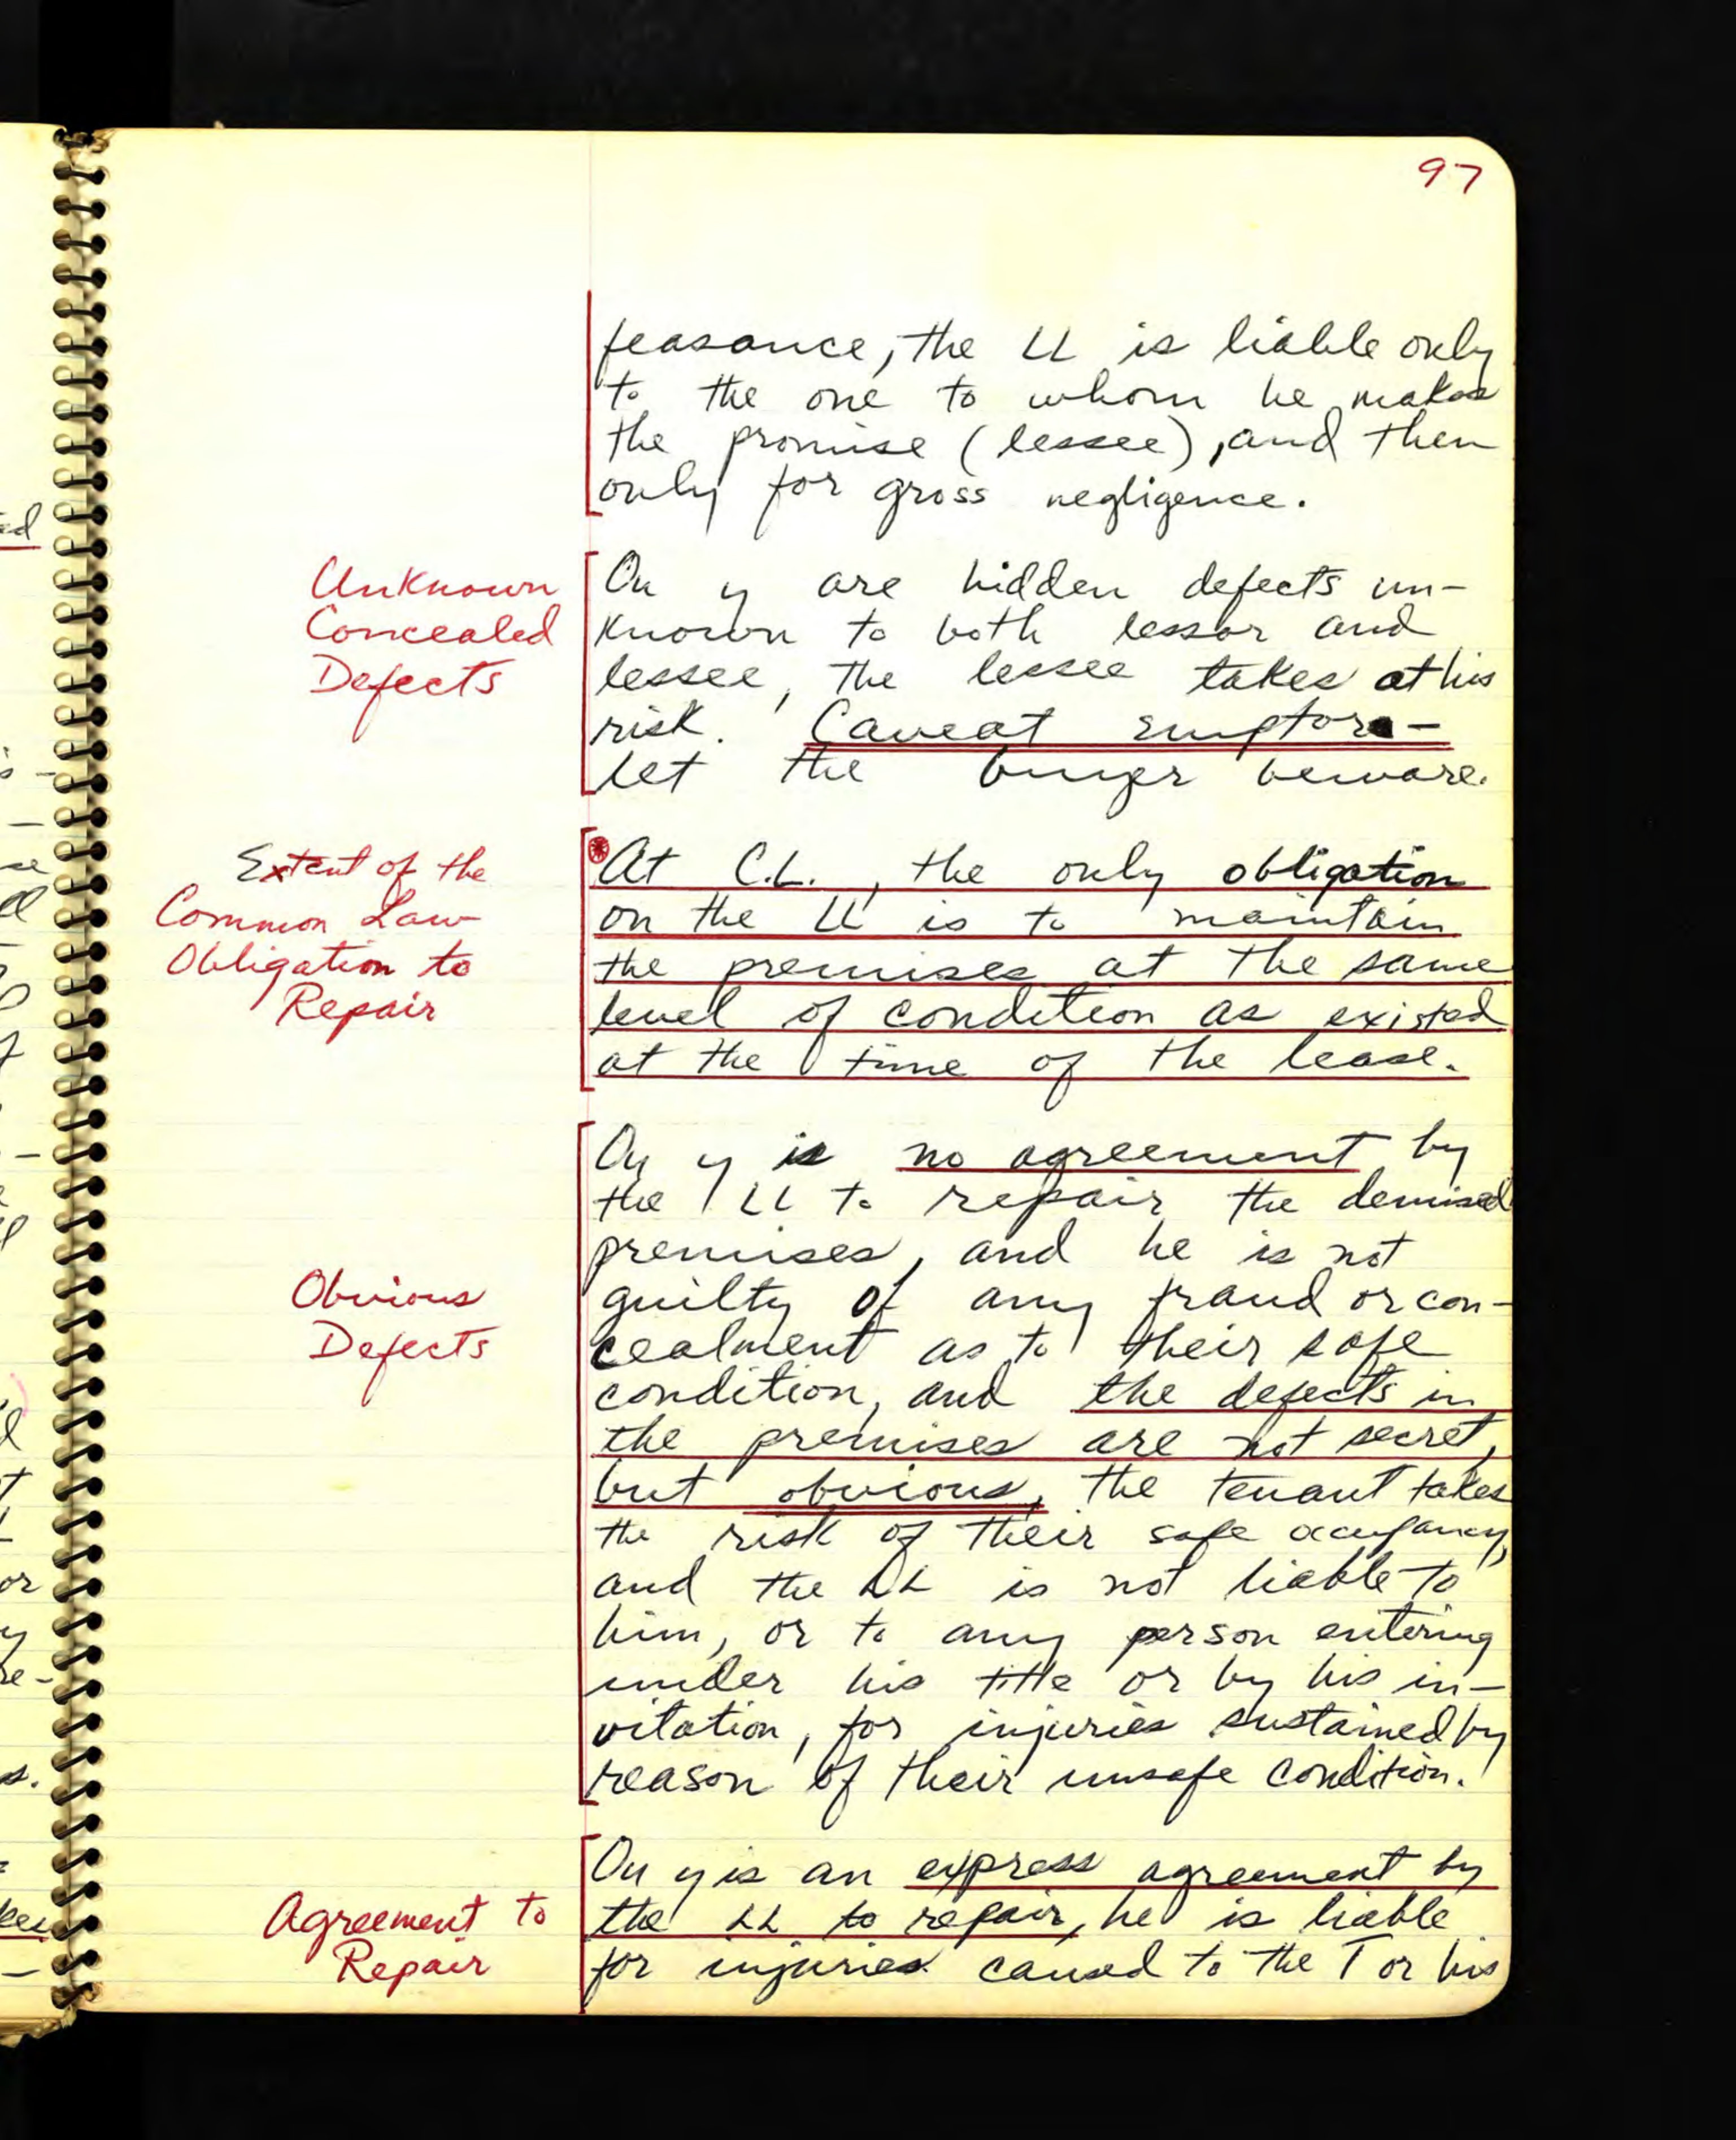 97
feasance, the LL is liable only
to the one to whom he makes
the promise (lessee), and then
only for gross negligence.
Unknown
Concealed
Defects
Ou y are hidden defects un-
known to both lessor and
lessee, the lessee takes at his
risk. Caveat emptor -
let the buyer beware.
Extent of the
Common Law
Obligation to
Repair
At C.L., the only obligation
on the LL is to maintain
the premises at the same
level of condition as existed
at the time of the lease.
Obvious
Defects
Ou y is no agreement by
the LL to repair the demised
premises, and he is not
guilty of any fraud or con-
cealment as to their safe
condition, and the defects in
the premises are not secret,
but obvious, the tenant takes
the risk of their safe occupancy,
and the LL is not liable to
him, or to any person entering
under his title or by his in-
vitation, for injuries sustained by
reason of their unsafe condition.
Agreement to
Repair
Ou y is an express agreement by
the LL to repair, he is liable
for injuries caused to the T or his